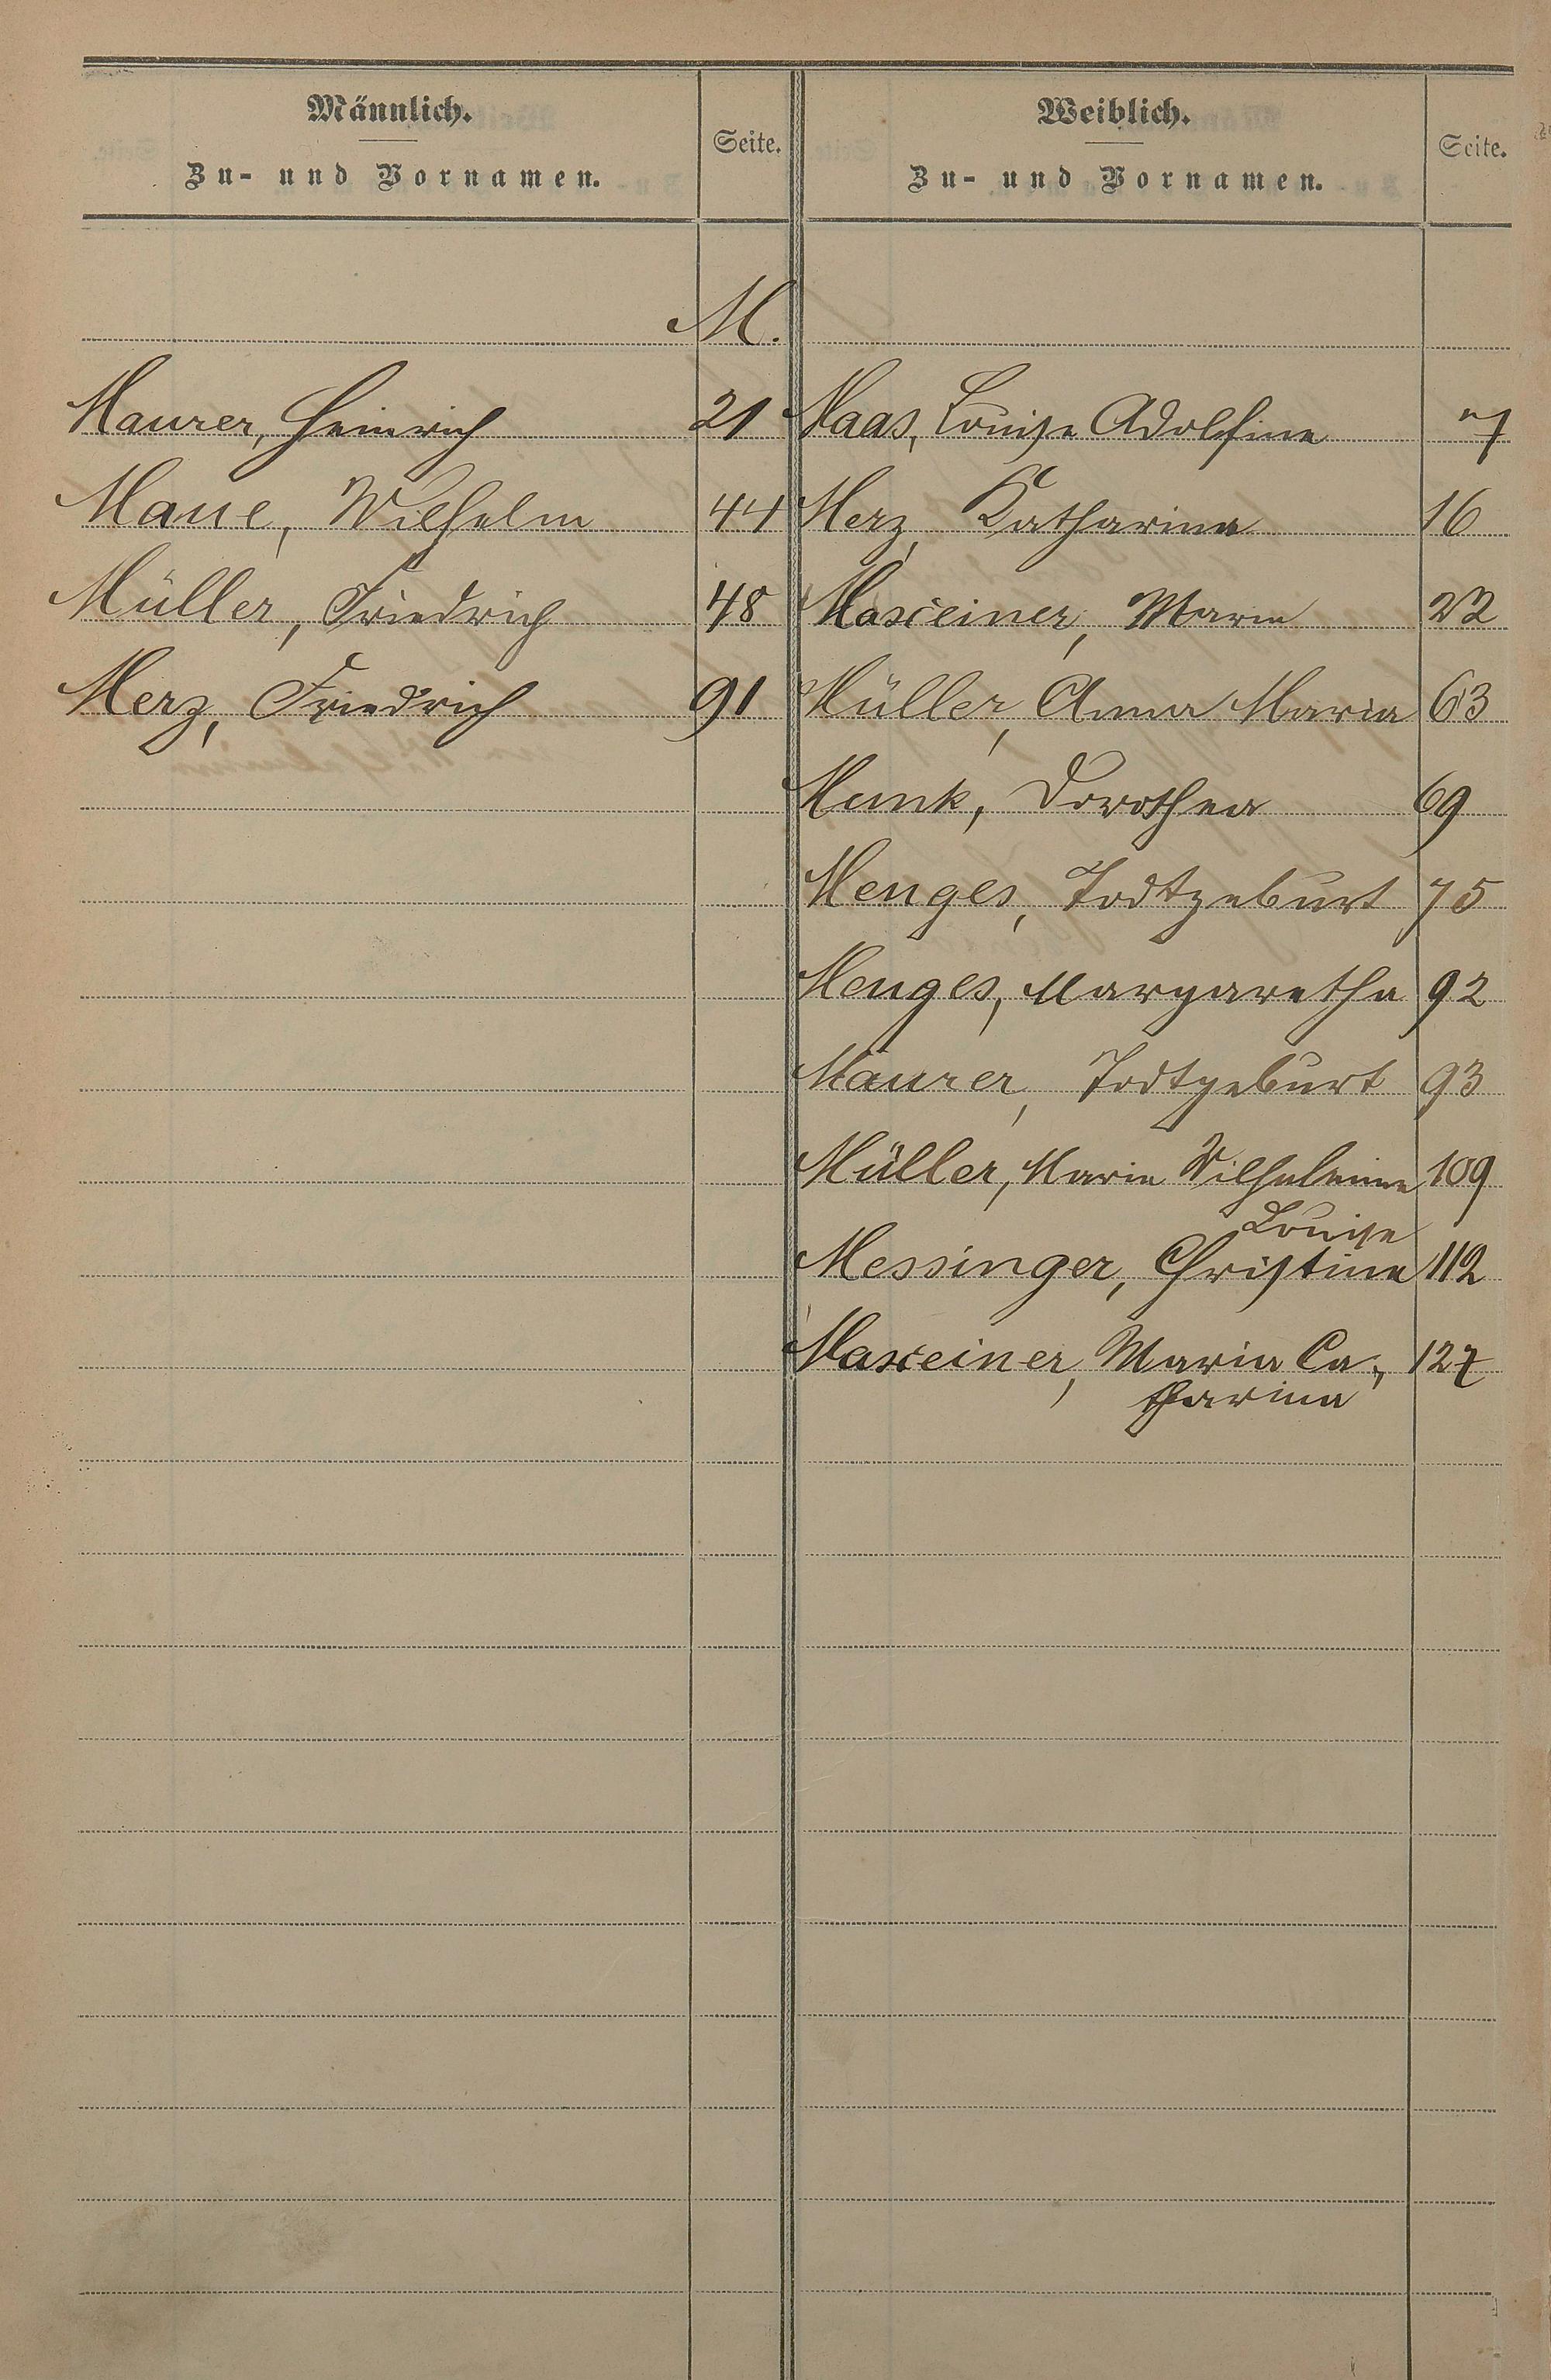 Männlich.
Zu- und Vornamen.
Seite.
Weiblich.
Zu- und Vornamen.
Seite.
M.
Maurer, Heinrich 21
Maue, Wilhelm 44
Müller, Friedrich 48
Merz, Friedrich 91
Maas, Louise Adolfine 7
Merz, Katharina 16
Maxeiner, Marie 22
Müller, Anna Maria 63
Munk, Dorothea 69
Menges, Todtgeburt 75
Menges, Margaretha 92
Maurer, Todtgeburt 93
Müller, Marie Wilhelmine 109
Louise
Messinger, Christine 112
Maxeiner, Maria Ca- 127
tharina